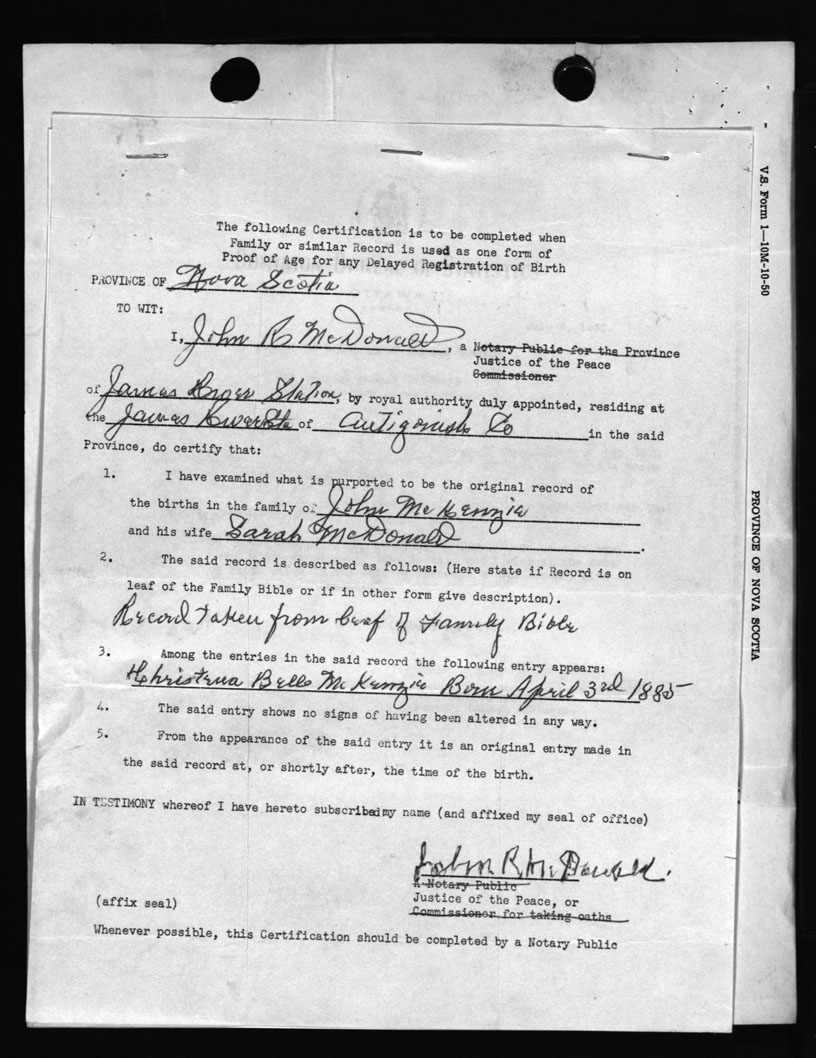 The following Certification is to be completed when
Family or similar Record is used as one form of
Proof of Age for any Delayed Registration of Birth
PROVINCE OF Nova Scotia
TO WIT:
I, John R McDonald, a Notary Public for the Province
Justice of the Peace
Commissioner
of James River Station, by royal authority duly appointed, residing at
the James River Sta of Antigonish Co in the said
Province, do certify that:
1. I have examined what is purported to be the original record of
the births in the family of John McKenzie
and his wife Sarah McDonald.
2. The said record is described as follows: (Here state if Record is on
leaf of the Family Bible or if in other form give description).
Record taken from leaf of Family Bible
3. Among the entries in the said record the following entry appears:
Christena Belle McKenzie Born April 3rd 1885
4. The said entry shows no signs of having been altered in any way.
5. From the appearance of the said entry it is an original entry made in
the said record at, or shortly after, the time of the birth.
IN TESTIMONY whereof I have hereto subscribed my name (and affixed my seal of office)
John R McDonald.
A Notary Public
(affix seal) Justice of the Peace, or
Commissioner for taking oaths
Whenever possible, this Certification should be completed by a Notary Public
V.S. Form 1—10M-10-50
PROVINCE OF NOVA SCOTIA